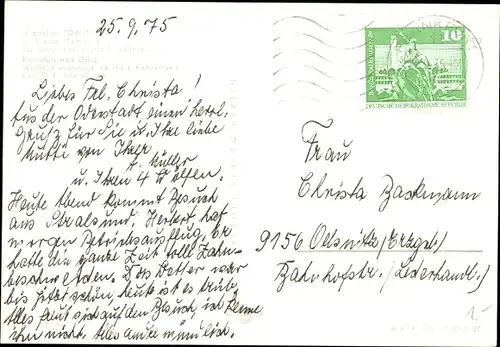 25.9.75
Frankfurt (Oder)
Liebes Frl. Christa!
Aus der Oderstadt einen herzl.
Gruß für Sie und Ihre liebe
Mutti von Ihrer
A. Müller
u. Ihren 4
Heute Abend kommt Besuch
aus Stralsund. Herbert hat
morgen Betriebsausflug, er
hatte die ganze Zeit tolle Zahn-
beschwerden. Das Wetter war
bis jetzt schön, heute ist es trüb.
Alles freut sich auf den Besuch, ich kenne
ihn nicht. Alles andre mündlich.
10
DEUTSCHE DEMOKRATISCHE REPUBLIK
Frau
Christa Backmann
9156 Oelsnitz/Erzgeb.
Bahnhofstr. (Lederhandl.)